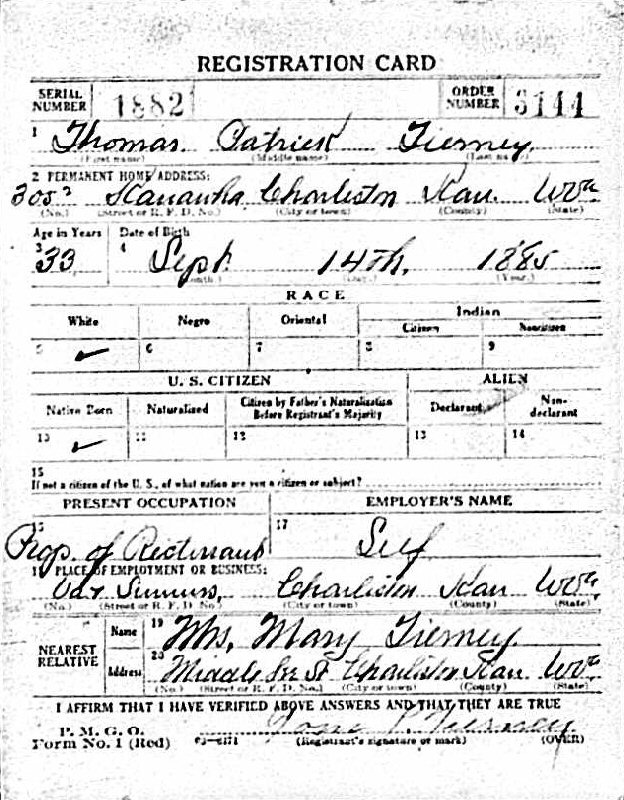 REGISTRATION CARD
SERIAL NUMBER 1882 ORDER NUMBER
1 Thomas Patrick Tierney
(First name) (Middle name) (Last name)
2 PERMANENT HOME ADDRESS:
Kanawha Charleston Kan. W Va
(No.) (Street or R. F. D. No.) (City or town) (County) (State)
Age in Years Date of Birth
3 33 4 Sept. 14th, 1885
(Month.) (Day.) (Year.)
RACE
White Negro Oriental Indian
Citizen Noncitizen
5 ✓ 6 7 8 9
U. S. CITIZEN ALIEN
Native Born Naturalized Citizen by Father's Naturalization Before Registrant's Majority Declarant Non-declarant
10 ✓ 11 12 13 14
15
If not a citizen of the U. S., of what nation are you a citizen or subject?
PRESENT OCCUPATION EMPLOYER'S NAME
16 Prop. of Resterraunt 17 Self
18 PLACE OF EMPLOYMENT OR BUSINESS:
Summers, Charleston Kan W Va
(No.) (Street or R. F. D. No.) (City or town) (County) (State)
NEAREST RELATIVE
Name 19 Mrs. Mary Tierney
Address 20 St Charleston Kan W Va
(No.) (Street or R. F. D. No.) (City or town) (County) (State)
I AFFIRM THAT I HAVE VERIFIED ABOVE ANSWERS AND THAT THEY ARE TRUE
P. M. G. O.
Form No. 1 (Red) P. Tierney
(Registrant's signature or mark) (OVER)